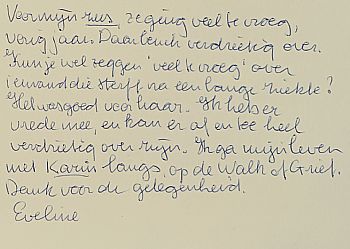 Voor mijn zus, ze ging veel te vroeg,
vorig jaar. Daar ben ik verdrietig over.
Kun je wel zeggen 'veel te vroeg' over
iemand die sterft na een lange ziekte?
Het was goed voor haar. Ik heb er
vrede mee, en kan er af en toe heel
verdrietig over zijn. Ik ga mijn leven
met Karin langs, op de Walk of Grief.
Dank voor de gelegenheid.
Eveline